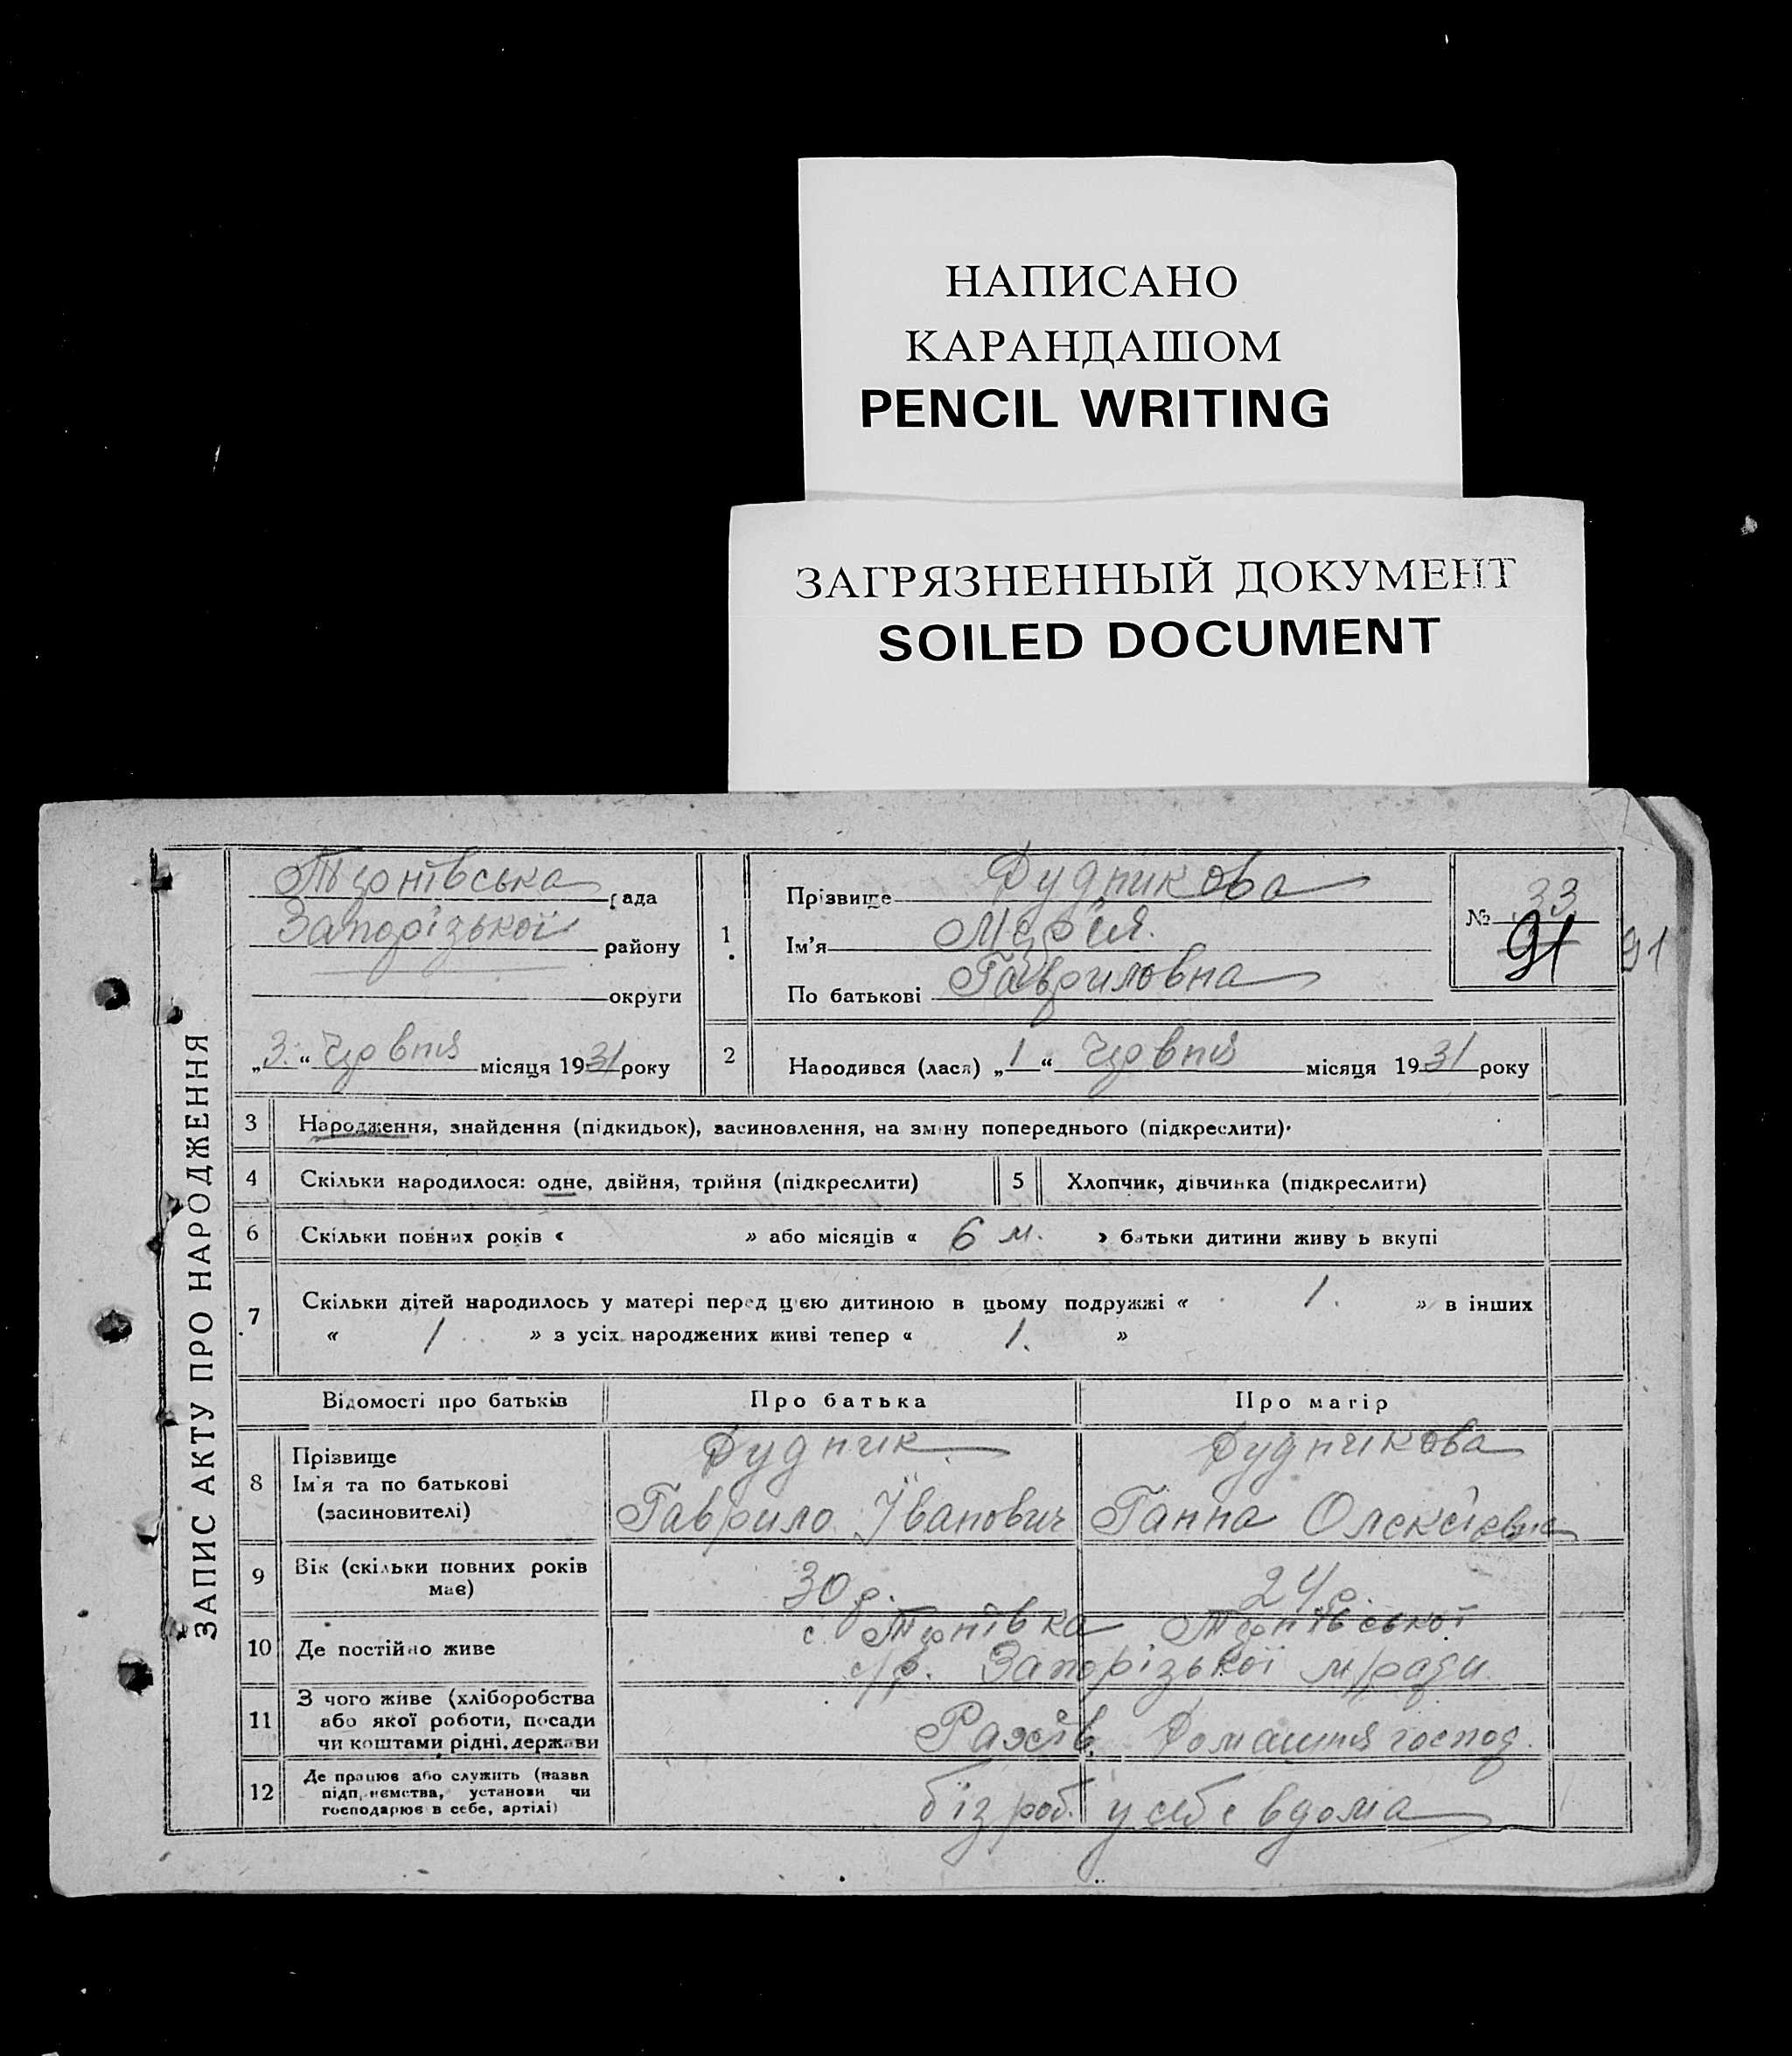 НАПИСАНО
КАРАНДАШОМ
PENCIL WRITING
ЗАГРЯЗНЕННЫЙ ДОКУМЕНТ
SOILED DOCUMENT
ЗАПИС АКТУ ПРО НАРОДЖЕННЯ
Тернівська рада
Запорізької району
округи
„3“ Червня місяця 1931 року
1. Прізвище Дудникова
Ім’я Марія.
По батькові Гавриловна
№ 33
91
91
2 Народився (лася) „1“ Червня місяця 1931 року
3 Народження, знайдення (підкидьок), засиновлення, на зміну попереднього (підкреслити).
4 Скільки народилося: одне, двійня, трійня (підкреслити) 5 Хлопчик, дівчинка (підкреслити)
6 Скільки повних років « » або місяців « 6 м. » батьки дитини живуть вкупі
7 Скільки дітей народилось у матері перед цією дитиною в цьому подружжі « 1. » в інших
« 1 » з усіх народжених живі тепер « 1. »
Відомості про батьків Про батька Про матір
8 Прізвище Дудник Дудникова
Ім’я та по батькові
(засиновителі) Гаврило Іванович Ганна Олексієвна
9 Вік (скільки повних років
має) 30 р. 24 р.
10 Де постійно живе с. Тернівка Тернівської
с/р. Запорізької м/ради
11 З чого живе (хліборобства
або якої роботи, посади
чи коштами рідні, держави Домашня господ.
12 Де працює або служить (назва
підприємства, установи чи
господарює в себе, артілі) у себе вдома